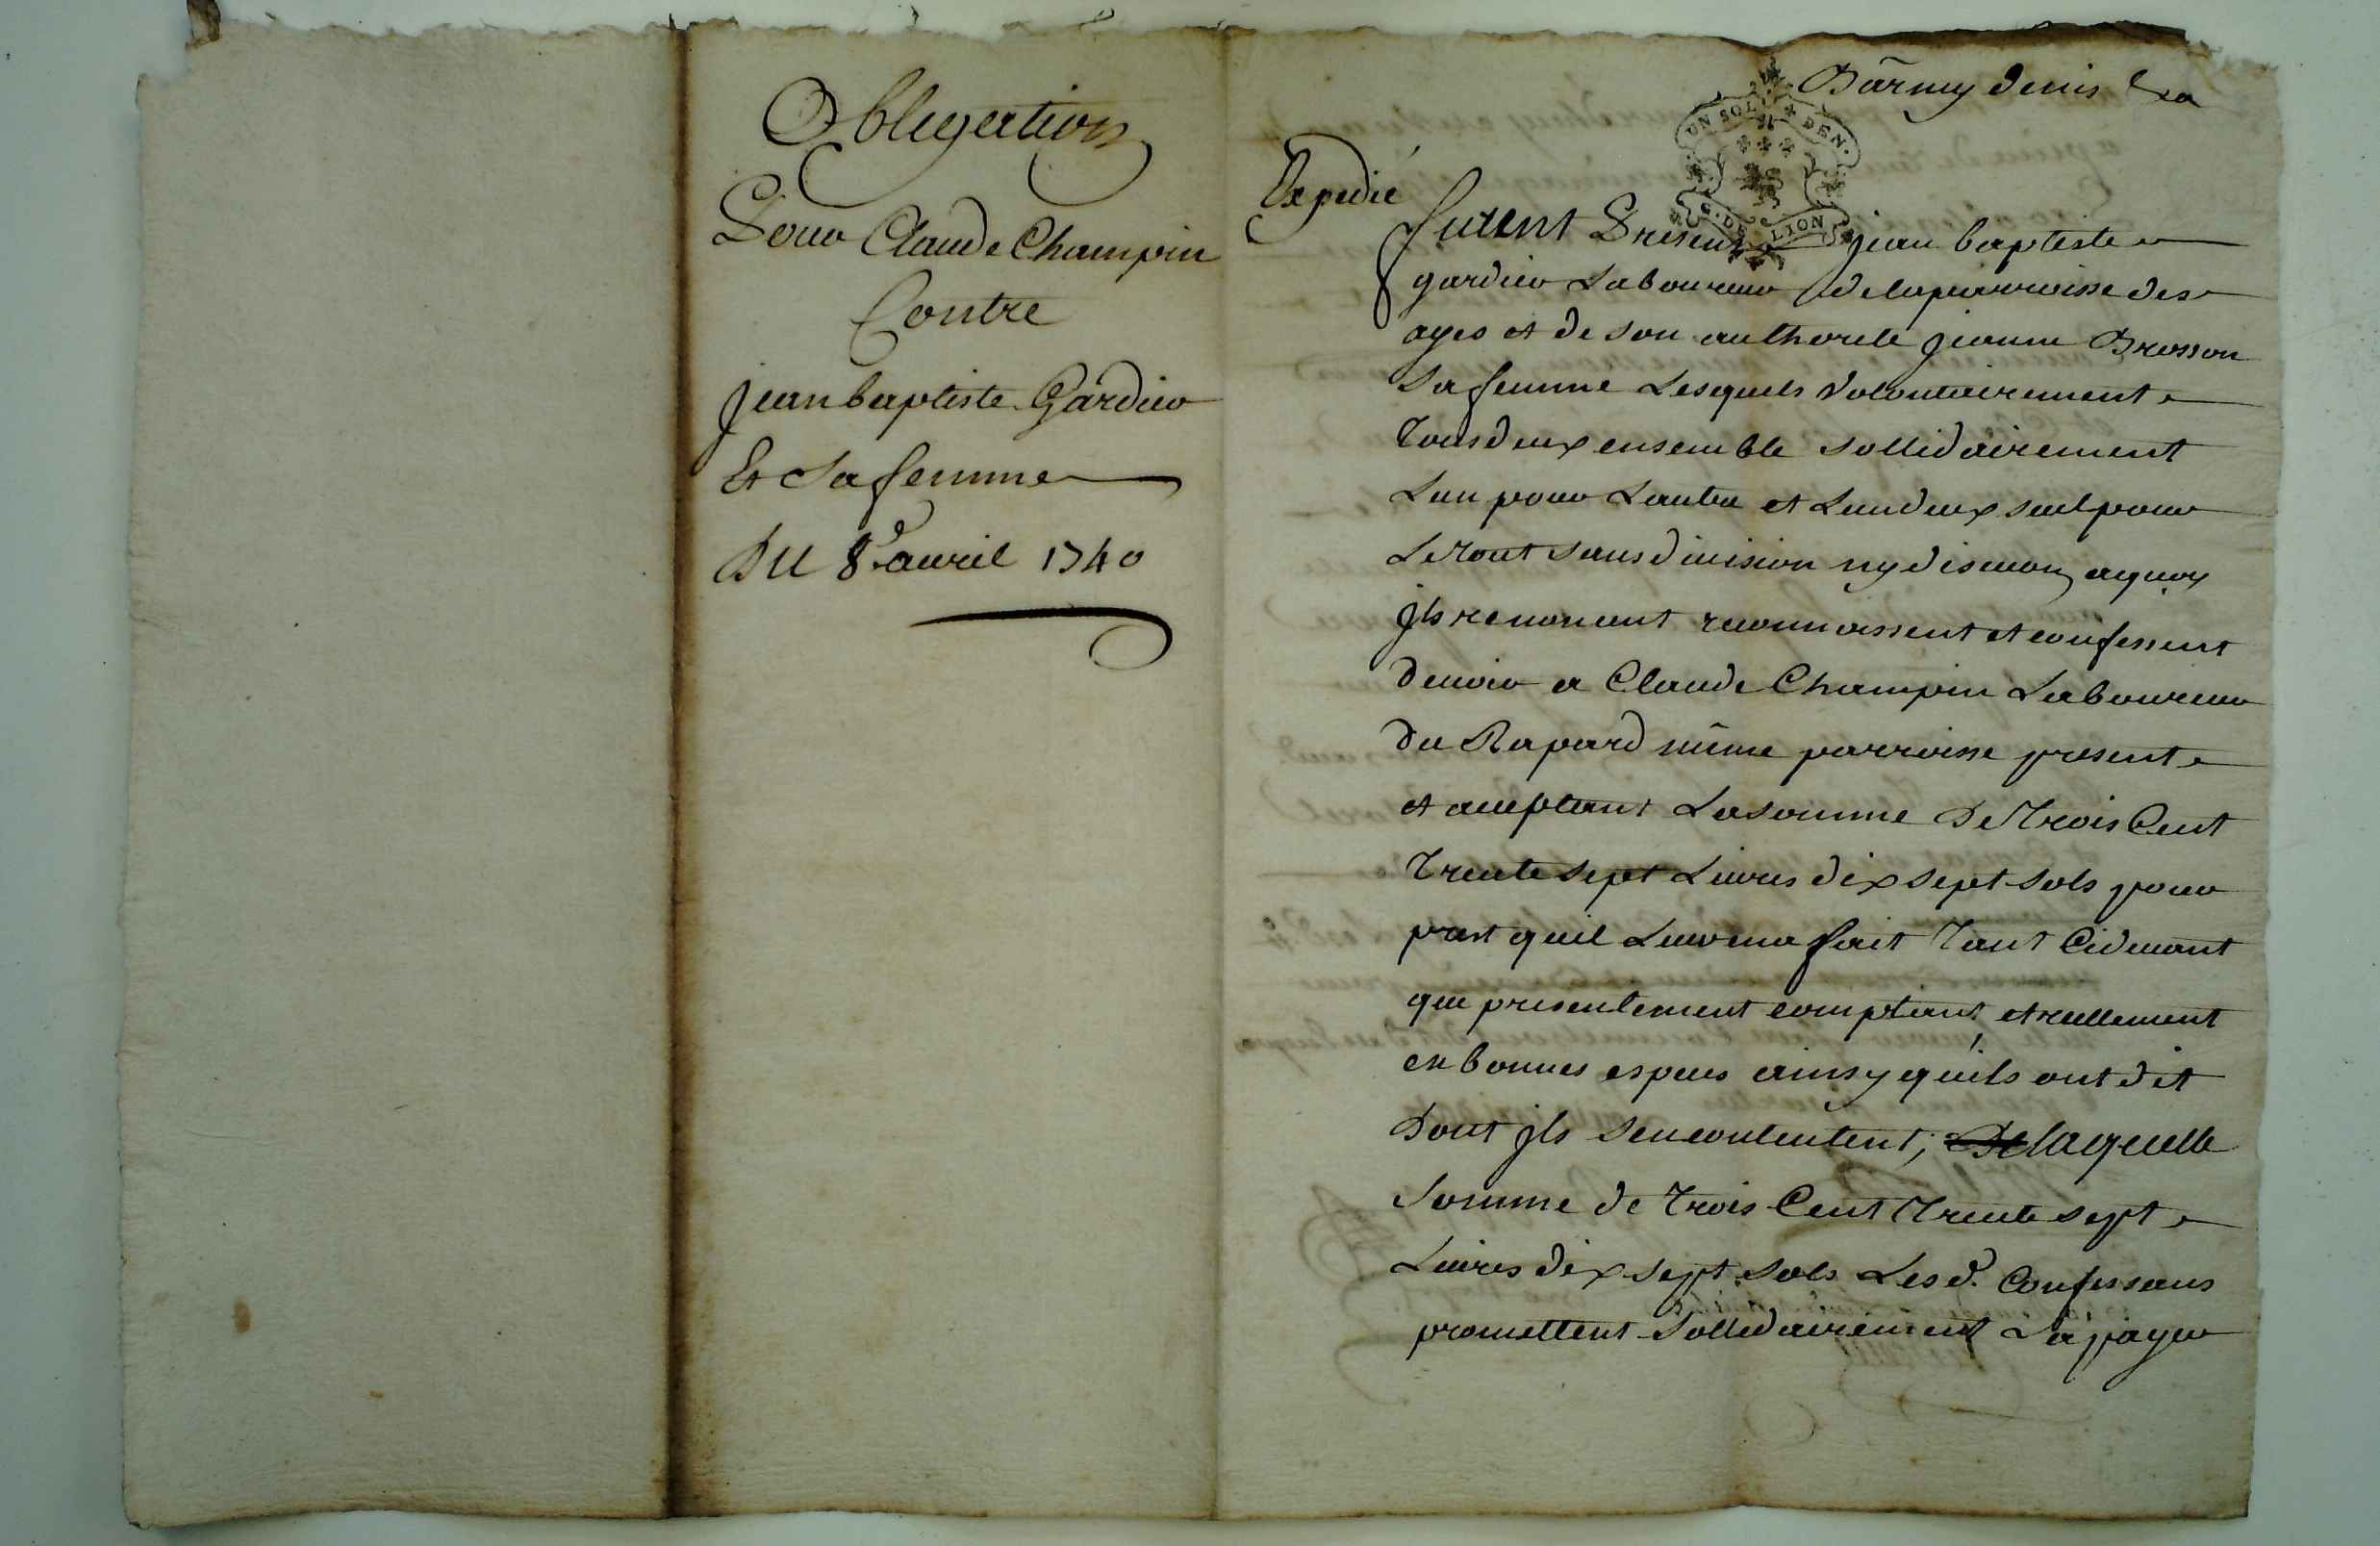 Obligation
Pour Claude Champin
Contre
jean baptiste Gardier
Et Sa femme
Du 8e. avril 1740
denis
UN SOL DEN.
G. DE LION
Expedié
furent Presens jean baptiste
gardier Laboureur de la parroisse des
ayes et de son authorité jeanne Brosson
Sa femme Lesquels volontairement
Tous deux ensemble sollidairement
Lun pour Lautre et Lun deux seul pour
Le Tout sans division ny discution aquoy
jls renoncent reconnoissent et confessent
devoir a Claude Champin Laboureur
du Rapard même parroisse present
et acceptant La somme De Trois Cent
Trente sept Livres dix sept sols pour
prest quil Leur en a fait Tant Cidevant
que presentement comptant, et reellement
en bonnes especes ainsy quils ont dit
Dont jls sen contentent, De laquelle
Somme de Trois Cent Trente sept
Livres dix sept sols Lesd. Confessans
promettent Sollidairement La payer